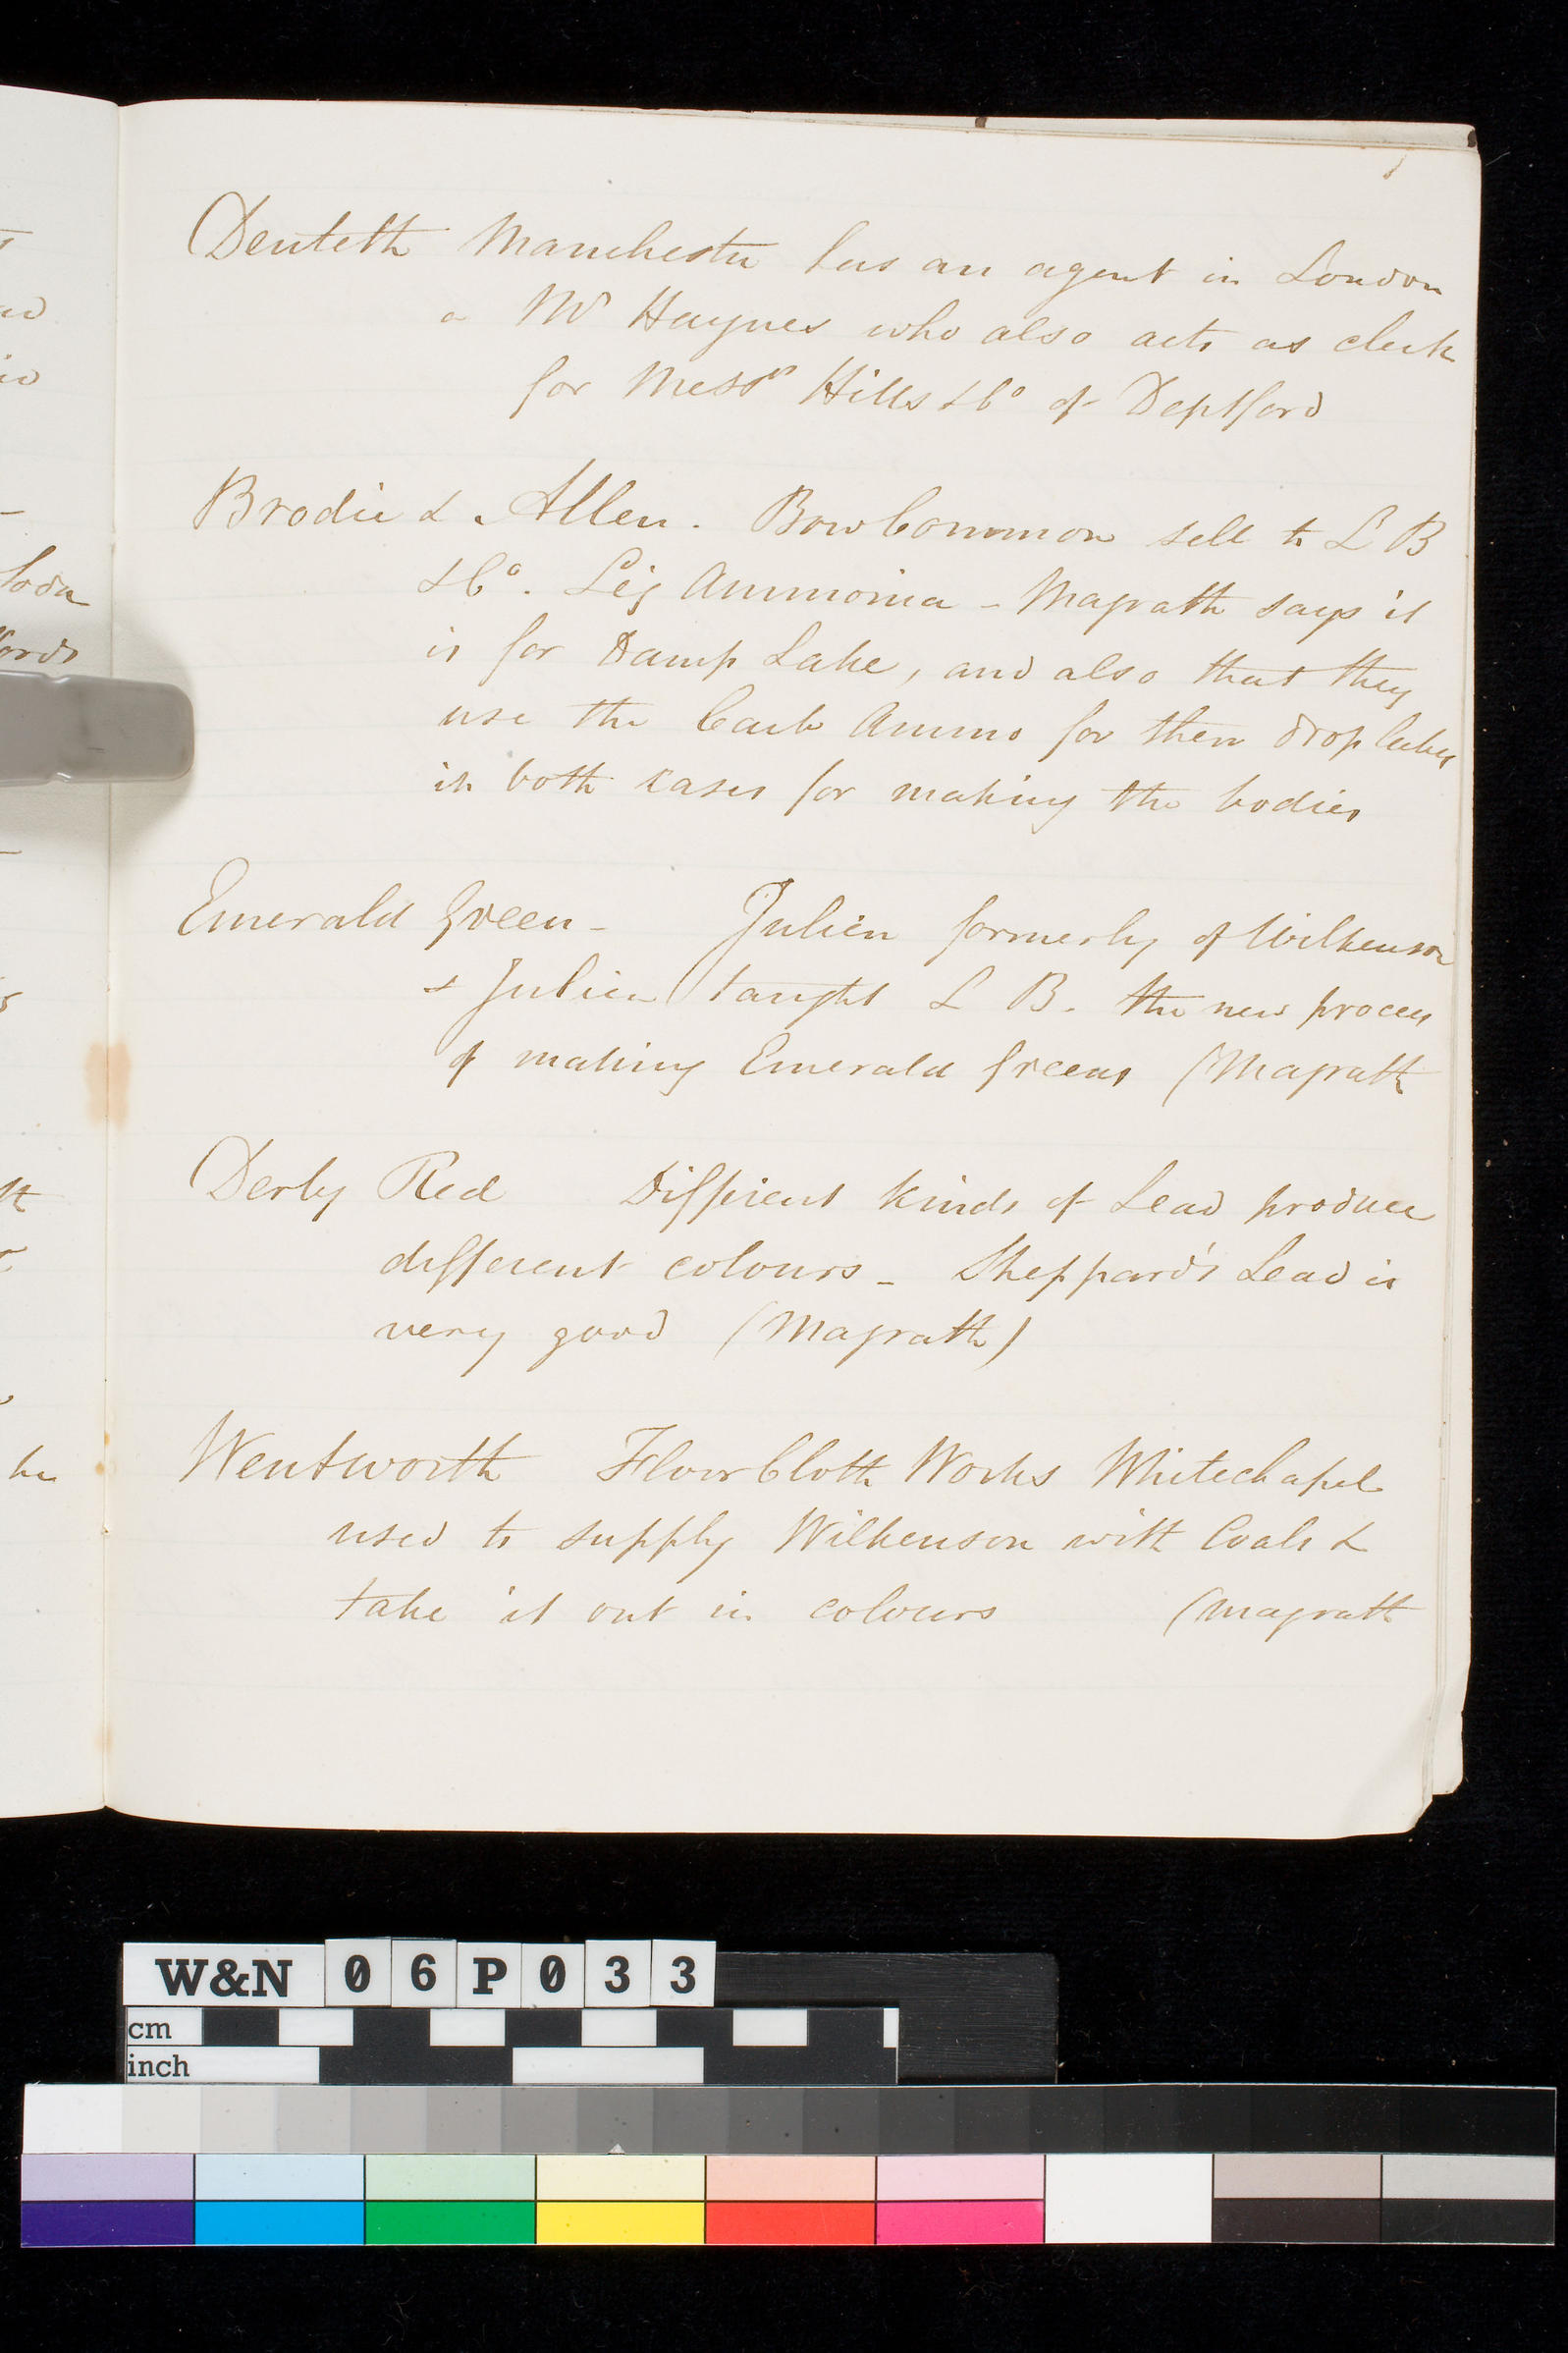 Denteth Manchester has an agent in London
a Mr Haynes who also acts as clerk
for Messrs Hills & Co of Deptford
Brodie & Allen. Bow Common sell to L B
& Co. Liq Ammonia - Magrath says it
is for Damp Lake, and also that they
use the Carb Ammo for their drop lakes
in both cases for making the bodies
Emerald Green - Julien formerly of Wilkenson
& Julien taught L B. the new process
of making Emerald Greens (Magrath
Derby Red Different kinds of Lead produce
different colours - Sheppard's Lead is
very good (Magrath)
Wentworth Floor Cloth Works Whitechapel
used to supply Wilkenson with Coals &
take it out in colours (Magrath
W&N 06P033
cm
inch